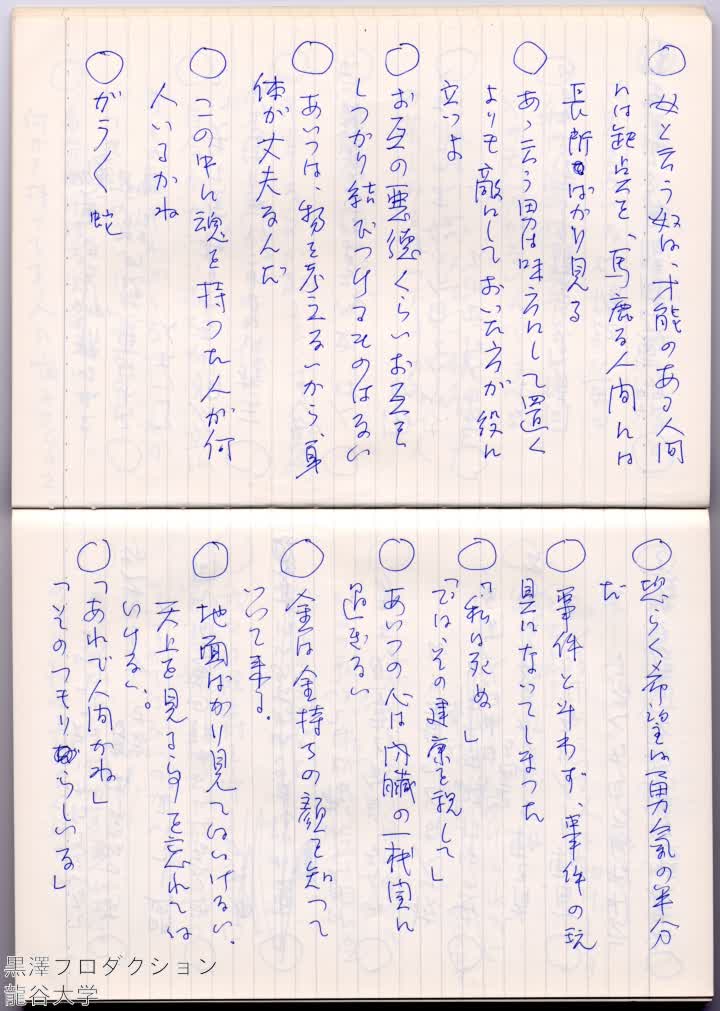 ○ 女と云う奴は、才能のある人間
には欠点を、馬鹿な人間には
長所ばかり見る
○ あゝ云う男は味方にして置く
よりも敵にしておいた方が役に
立つよ
○ お互の悪徳くらいお互を
しっかり結びつけるものはない
○ あいつは、物を考えないから、身
体が丈夫なんだ
○ この中に魂を持つた人が何
人いるかね
○ がらくた
○ 恐らく希望は勇気の半分
だ
○ 事件と斗わず、事件の玩
具になってしまった
○ 「私は死ぬ」
「では、その健康を祝して」
○ あいつの心は内臓の一機関に
過ぎない
○ 金は金持ちの顔を知って
いて来る。
○ 地面ばかり見てはいけない。
天上を見る事を忘れては
いけない。
○ 「あれで人間かね」
「そのつもりらしいな」
黒澤プロダクション
龍谷大学